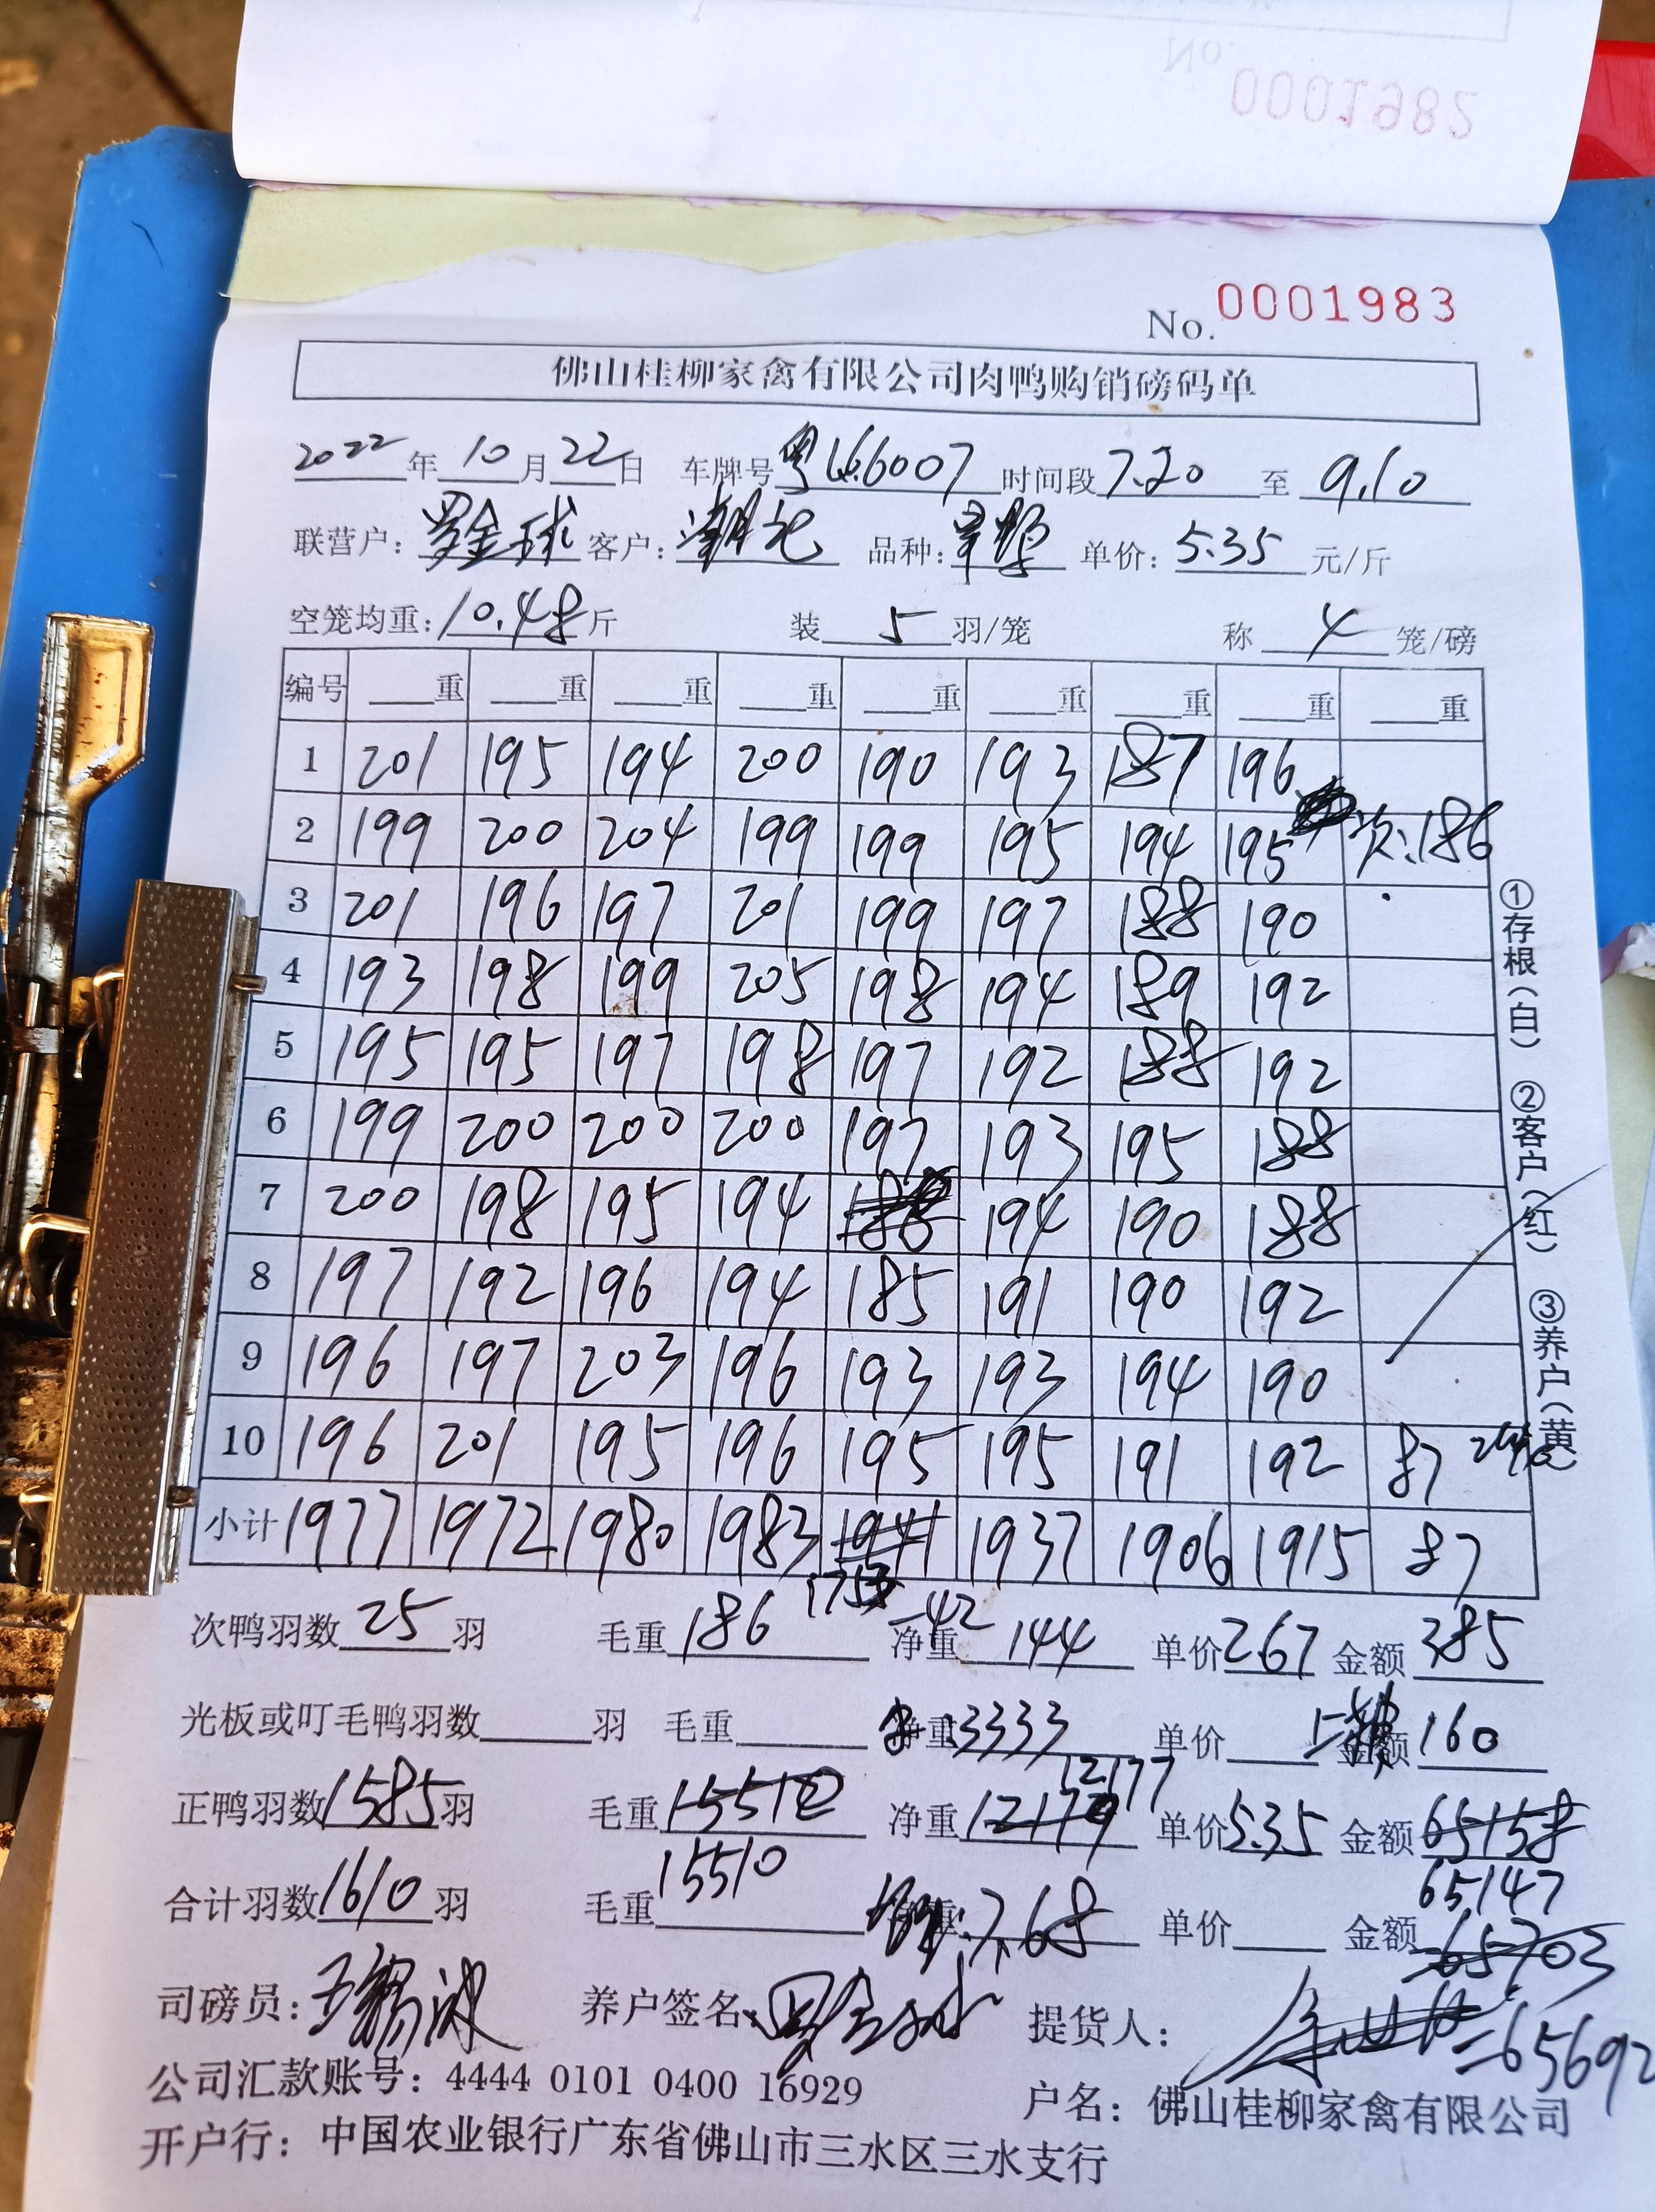 No. 0001982
No. 0001983
佛山桂柳家禽有限公司肉鸭购销磅码单
2022年10月22日 车牌号粤 66007 时间段7.20至9.10
联营户:罗金球 客户:潮记 品种: 单价:5.35元/斤
空笼均重:10.48斤 装5羽/笼 称4笼/磅
编号 重 重 重 重 重 重 重 重 重
1 201 195 194 200 190 193 187 196
2 199 200 204 199 199 195 194 195 次:186
3 201 196 197 201 199 197 188 190
4 193 198 199 205 198 194 189 192
5 195 195 197 198 197 192 188 192
6 199 200 200 200 197 193 195 188
7 200 198 195 194 188 194 190 188
8 197 192 196 194 185 191 190 192
9 196 197 203 196 193 193 194 190
10 196 201 195 196 195 195 191 192 87 2笼
小计 1977 1972 1980 1983 1941 1937 1906 1915 87
次鸭羽数25羽 毛重186 净重-42 144 单价2.67 金额385
光板或叮毛鸭羽数 羽 毛重 净重3333 单价 金额160
12177
正鸭羽数1585羽 毛重15512 净重12179 单价5.35 金额65158
15510 65147
合计羽数1610羽 毛重 净重 7.68 单价 金额65703
司磅员: 养户签名:罗金球 提货人:
=65692
公司汇款账号:4444 0101 0400 16929 户名:佛山桂柳家禽有限公司
开户行:中国农业银行广东省佛山市三水区三水支行
①存根(白) ②客户(红) ③养户(黄)